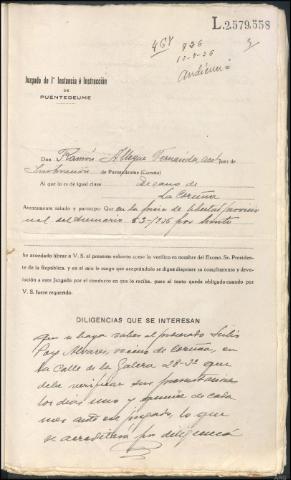 L.2.579.558
10-8-36
Juzgado de 1ª Instancia é Instrucción
DE
PUENTEDEUME
Don Ramón Allegue Fernández, Juez de
Instrucción de Puentedeume (Coruña)
Al que lo es de igual clase decano de
La Coruña
Atentamente saludo y participo: Que en la pieza de libertad provisio
nal del sumario 63-1936 por hurto
he acordado librar a V. S. el presente exhorto como lo verifico en nombre del Excmo. Sr. Presiden-
te de la República, y en el mío le ruego que aceptándolo se digne disponer su cumplimiento y devolu-
ción a este Juzgado por el conducto en que lo reciba, pues al tanto quedo obligado cuando por
V. S. fuere requerido.
DILIGENCIAS QUE SE INTERESAN
que se haga saber al procesado Julio
Alvarez, vecino de Coruña, en
la Calle de la Galera 28-3º que
debe verificar sus presentaciones
los dias uno y quince de cada
mes ante ese juzgado, lo que
se acreditará por diligencia